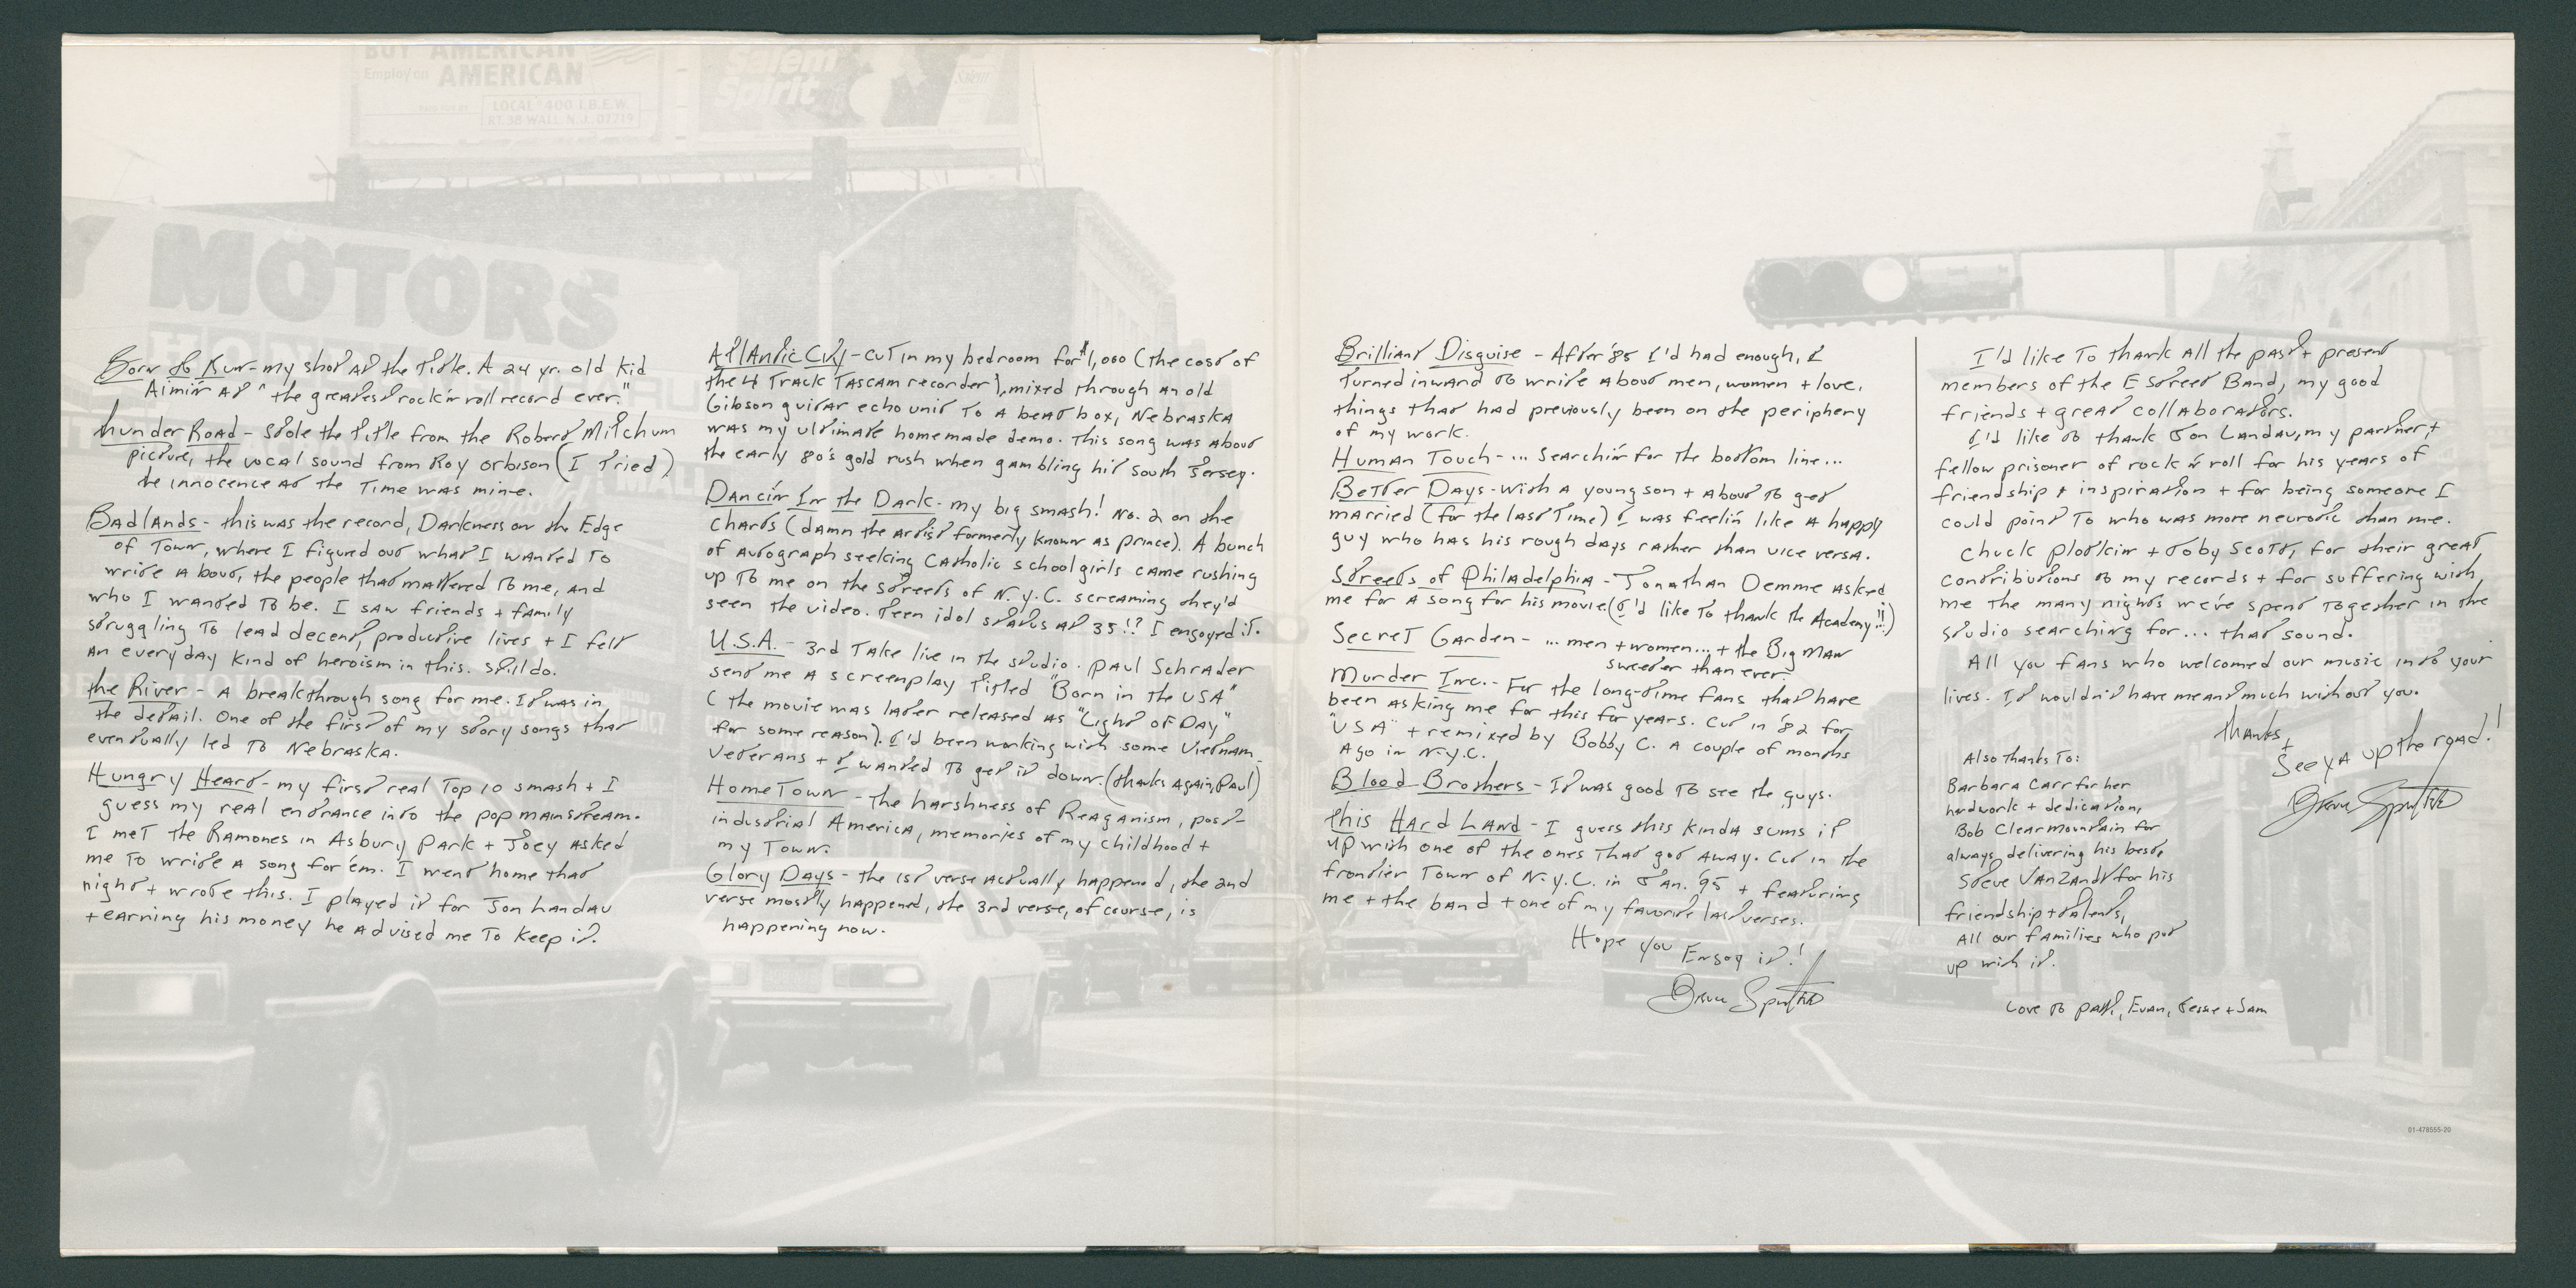 BUY AMERICAN
Employ an AMERICAN
LOCAL 400 I.B.E.W.
RT. 38 WALL, N.J. 07719
Salem
spirit
Y MOTORS
Born to Run - my shot at the title. A 24 yr. old kid
Aimin' at "the greatest rock'n roll record ever."
thunder Road - Stole the title from the Robert Mitchum
picture, the vocal sound from Roy Orbison (I tried)
the innocence at the Time was mine.
Badlands - this was the record, Darkness on the Edge
of Town, where I figured out what I wanted to
write about, the people that mattered to me, and
who I wanted to be. I saw friends + family
struggling to lead decent, productive lives + I felt
an everyday kind of heroism in this. Still do.
the River - A breakthrough song for me. It was in
the detail. One of the first of my story songs that
eventually led to Nebraska.
Hungry Heart - my first real Top 10 smash + I
guess my real entrance into the pop mainstream.
I met the Ramones in Asbury Park + Joey asked
me to write a song for 'em. I went home that
night + wrote this. I played it for Jon Landau
+ earning his money he advised me to keep it.
Atlantic City - cut in my bedroom for $1,000 (the cost of
the 4 Track Tascam recorder), mixed through an old
Gibson guitar echo unit to a beat box, Nebraska
was my ultimate homemade demo. This song was about
the early 80's gold rush when gambling hit South Jersey.
Dancin' In the Dark - my big smash! No. 2 on the
charts (damn the artist formerly known as prince). A bunch
of autograph seeking Catholic schoolgirls came rushing
up to me on the streets of N.Y.C. screaming they'd
seen the video. Teen idol status at 35!? I enjoyed it.
U.S.A. - 3rd Take live in the studio. Paul Schrader
send me a screenplay titled "Born in the USA"
(the movie was later released as "Light of Day"
for some reason). I'd been working with some Vietnam
Veterans + I wanted to get it down. (thanks again, Paul)
HomeTown - the harshness of Reaganism, post-
industrial America, memories of my childhood +
my Town.
Glory Days - the 1st verse actually happened, the 2nd
verse mostly happened, the 3rd verse, of course, is
happening now.
Brilliant Disguise - After '85 I'd had enough, I
turned inward to write about men, women + love,
things that had previously been on the periphery
of my work.
Human Touch - ... searchin' for the bottom line...
Better Days - with a young son + about to get
married (for the last time) I was feelin' like a happy
guy who has his rough days rather than vice versa.
Streets of Philadelphia - Jonathan Demme asked
me for a song for his movie (I'd like to thank the Academy!!...)
Secret Garden - ... men + women... + the Big Man
sweeter than ever.
Murder Inc. - For the long-time fans that have
been asking me for this for years. Cut in '82 for
"USA" + remixed by Bobby C. a couple of months
ago in N.Y.C.
Blood Brothers - It was good to see the guys.
this Hard Land - I guess this kinda sums it
up with one of the ones that got away. Cut in the
frontier Town of N.Y.C. in Jan. '95 + featuring
me + the band + one of my favorite last verses.
Hope you Enjoy it!
Bruce Springsteen
I'd like to thank all the past + present
members of the E Street Band, my good
friends + great collaborators.
I'd like to thank Jon Landau, my partner, +
fellow prisoner of rock'n roll for his years of
friendship + inspiration + for being someone I
could point to who was more neurotic than me.
Chuck Plotkin + Toby Scott, for their great
contributions to my records + for suffering with
me the many nights we've spent together in the
studio searching for... that sound.
All you fans who welcomed our music into your
lives. It wouldn't have meant much without you.
thanks,
+
See ya up the road!
Bruce Springsteen
Also Thanks To:
Barbara Carr for her
hardwork + dedication,
Bob Clearmountain for
always delivering his best,
Steve VanZandt for his
friendship + talents,
All our families who put
up with it.
Love to Patti, Evan, Jesse + Sam
01-478555-20